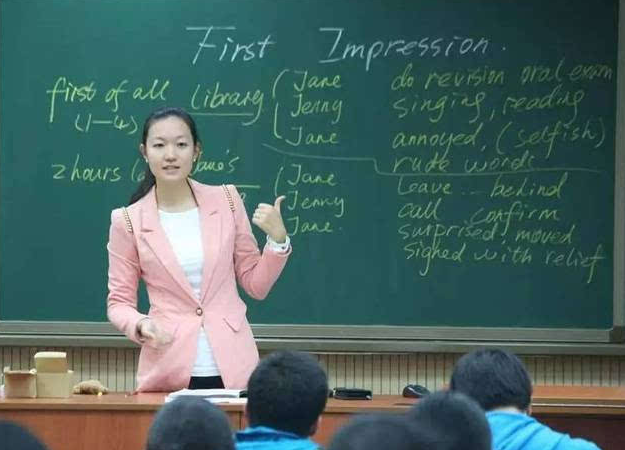 First Impression.
first of all library Jane do revision oral exam
(1-4) Jenny singing, reading
Jane annoyed, (selfish)
rude words
2 hours Jane leave... behind
Jenny call confirm
Jane. surprised, moved
sighed with relief